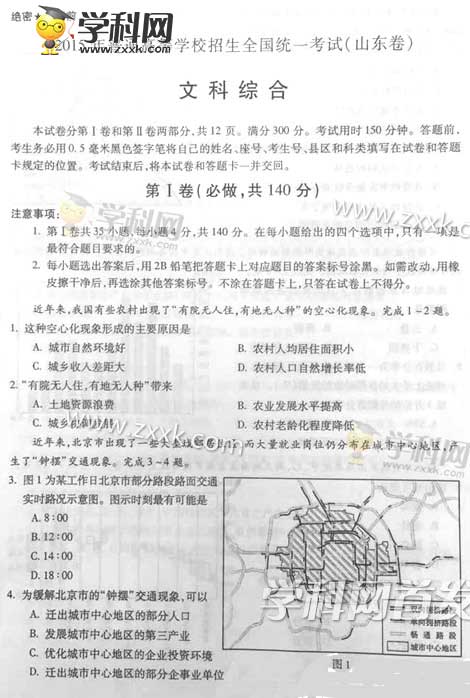 绝密★
学科网
www.zxxk.com
2015年普通高等学校招生全国统一考试(山东卷)
文科综合
本试卷分第Ⅰ卷和第Ⅱ卷两部分,共12页。满分300分。考试用时150分钟。答题前,
考生务必用0.5毫米黑色签字笔将自己的姓名、座号、考生号、县区和科类填写在试卷和答题
卡规定的位置。考试结束后,将本试卷和答题卡一并交回。
第Ⅰ卷(必做,共140分)
注意事项:
1. 第Ⅰ卷共35小题,每小题4分,共140分。在每小题给出的四个选项中,只有一项是
最符合题目要求的。
2. 每小题选出答案后,用2B铅笔把答题卡上对应题目的答案标号涂黑。如需改动,用橡
皮擦干净后,再选涂其他答案标号。不涂在答题卡上,只答在试卷上不得分。
近年来,我国有些农村出现了“有院无人住,有地无人种”的空心化现象。完成1~2题。
1. 这种空心化现象形成的主要原因是
A. 城市自然环境好 B. 农村人均居住面积小
C. 城乡收入差距大 D. 农村人口自然增长率低
2. “有院无人住,有地无人种”带来
A. 土地资源浪费 B. 农业发展水平提高
C. 城乡 D. 农村老龄化程度降低
近年来,北京市出现了一些大型 而大量就业岗位仍分布在城市中心地区,产
生了“钟摆”交通现象。完成3~4题。
3. 图1为某工作日北京市部分路段路面交通
实时路况示意图。图示时刻最有可能是
A. 8:00
B. 12:00
C. 14:00
D. 18:00
4. 为缓解北京市的“钟摆”交通现象,可以
A. 迁出城市中心地区的部分人口
B. 发展城市中心地区的第三产业
C. 优化城市中心地区的企业投资环境
D. 迁出城市中心地区的部分企事业单位
双向拥堵路段
单向拥挤路段
畅通路段
城市中心地区
图1
学科网首发